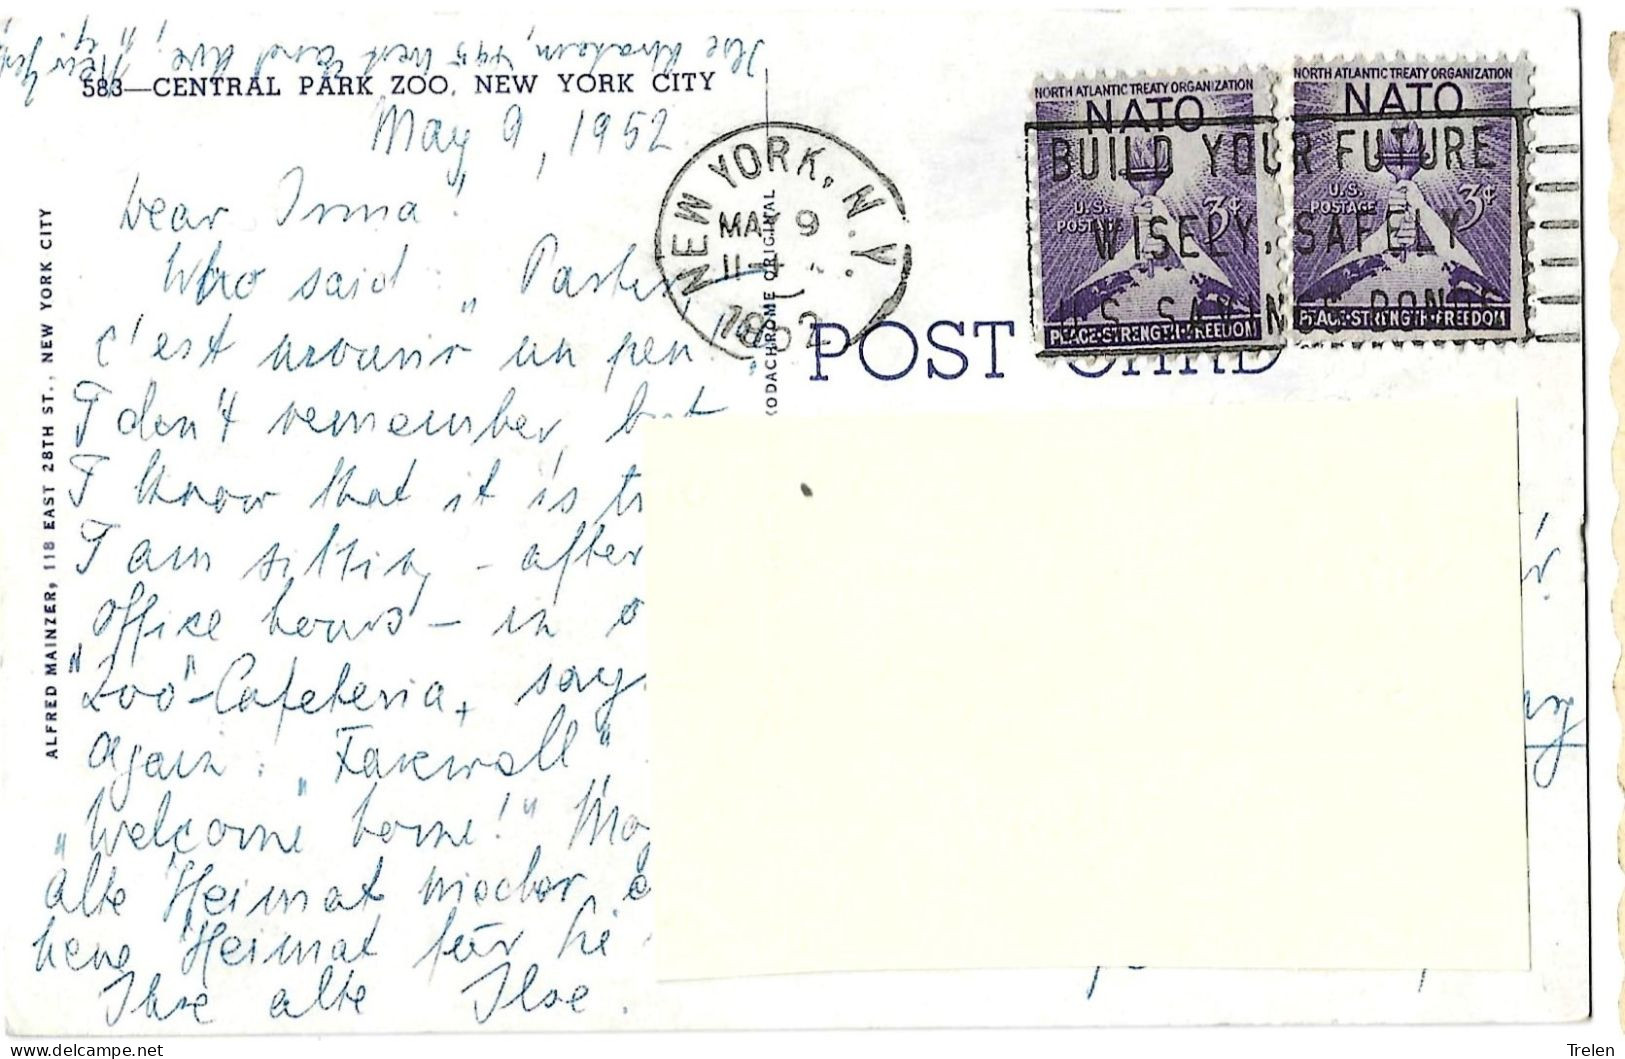 583—CENTRAL PARK ZOO, NEW YORK CITY
May 9, 1952
Dear Irma!
Who said: "Partir,
c'est mourir un peu",
I don't remember, but
I know that it is
I am sitting - after
office hours - in
"Zoo"-Cafeteria,
again: "Farewell"
"Welcome home!"
alte Heimat wieder
Heimat für Sie
Ihre alte Ilse.
ALFRED MAINZER, 118 EAST 28TH ST., NEW YORK CITY
KODACHROME ORIGINAL
NEW YORK, N.Y.
MAY 9
1952
POST CARD
NORTH ATLANTIC TREATY ORGANIZATION
NATO
U.S. POSTAGE
3¢
PEACE·STRENGTH·FREEDOM
NORTH ATLANTIC TREATY ORGANIZATION
NATO
U.S. POSTAGE
3¢
PEACE·STRENGTH·FREEDOM
BUILD YOUR FUTURE
WISELY, SAFELY
U.S. SAVINGS BONDS
Ilse Abraham, 495 West End Ave., N.Y.
Trelen